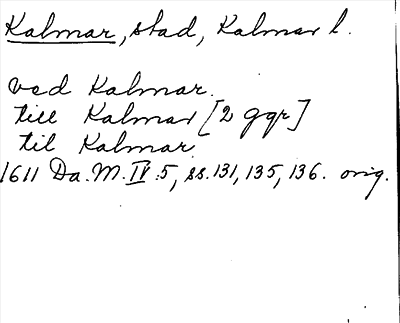 Kalmar, stad, Kalmar l.
ved Kalmar.
till Kalmar [2 ggr]
til Kalmar
1611 Da. M. IV :5, ss. 131, 135, 136. orig.